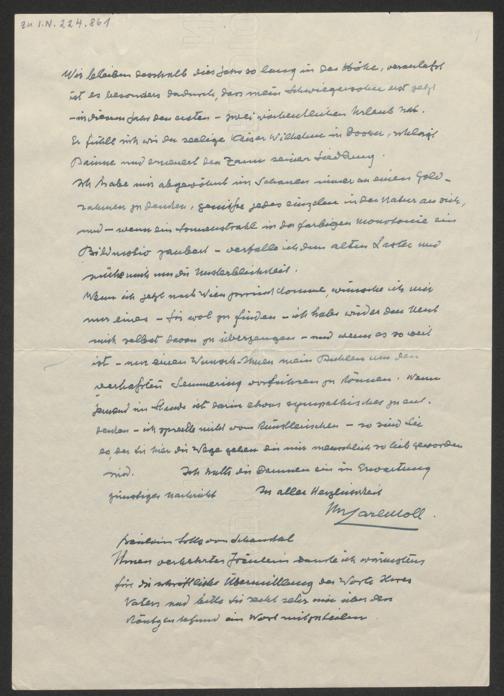 zu I.N. 224.861
Wir bleiben desshalb dies Jahr so lang in der Höhe, veranlasst
ist es besonders dadurch, dass mein Schwiegersohn erst jetzt
– in diesem Jahr den ersten – zwei wöchentlichen Urlaub hat.
Er fühlt sich wie der seelige Kaiser Wilhelm in Doorn, schlägt
Bäume und erneuert den Zaun seiner Siedlung.
Ich habe mir abgewöhnt im Schauen immer an einen Gold-
rahmen zu denken, genieße jedes einzelne in der Natur an sich,
und – wenn ein Sonnenstrahl in die farbigen Monotonie ein
Bildmotiv zaubert – verfalle ich dem alten Laster und
mühe mich um die Unsterblichkeit.
Wenn ich jetzt nach Wien zurück komme, wünsche ich mir
nur eines – Sie wol zu finden – ich habe wieder den Mut
mich selbst davon zu überzeugen – und wenn es so weit
ist – nur einen Wunsch Ihnen mein Buhlen um den
verhassten Semmering vorführen zu können. Wenn
jemand im Stande ist darin etwas sympathisches zu ent-
decken – ich spreche nicht vom Künstlerischen – so sind Sie
es, der Sie hier die Wege gehen die mir menschlich so lieb geworden
sind. Ich halte die Daumen ein in Erwartung
günstiger Nachricht In aller Herzlichkeit
Ihr Carl Moll.
Fräulein Lotte von
Ihnen verehrtes Fräulein danke ich wärmstens
für die schriftliche Übermittlung der Worte Ihres
Vaters und bitte Sie recht sehr mir über den
Röntgenbefund ein Wort mitzuteilen.